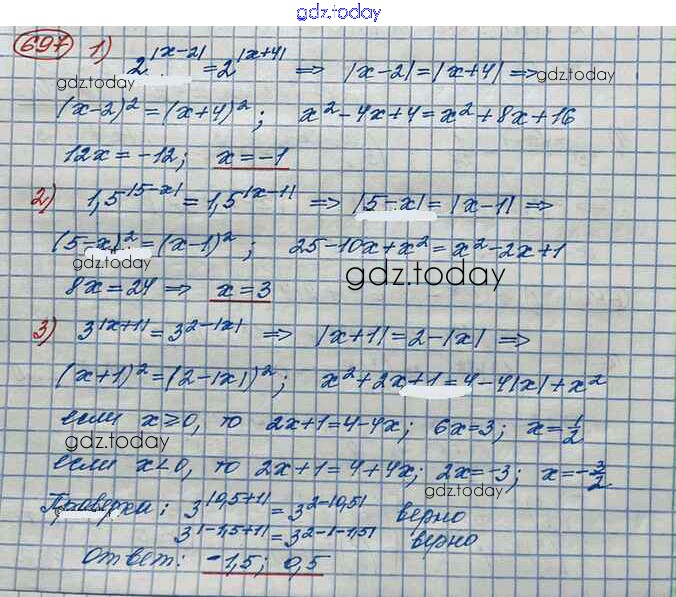 gdz.today
697 1) 2^|x-2| = 2^|x+4| ⇒ |x-2| = |x+4| ⇒
gdz.today gdz.today
(x-2)² = (x+4)²; x² - 4x + 4 = x² + 8x + 16
12x = -12; x = -1
2) 1,5^|5-x| = 1,5^|x-1| ⇒ |5-x| = |x-1| ⇒
(5-x)² = (x-1)²; 25 - 10x + x² = x² - 2x + 1
gdz.today gdz.today
8x = 24 ⇒ x = 3
3) 3^|x+1| = 3^2-|x| ⇒ |x+1| = 2-|x| ⇒
(x+1)² = (2-|x|)²; x² + 2x + 1 = 4 - 4|x| + x²
если x ≥ 0, то 2x+1 = 4-4x; 6x = 3; x = 1/2
gdz.today
если x < 0, то 2x+1 = 4+4x; 2x = -3; x = -3/2
gdz.today
Проверка: 3^|0,5+1| = 3^2-|0,5| верно
3^|-1,5+1| = 3^2-|-1,5| верно
ответ: -1,5; 0,5